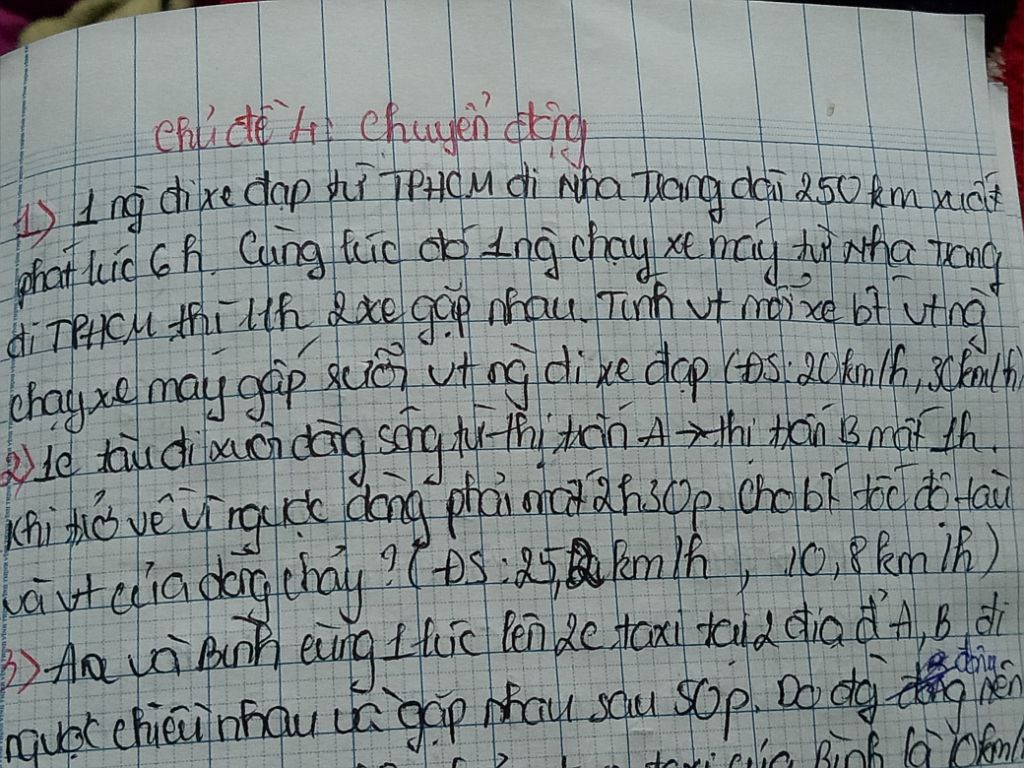 Chủ đề 4: Chuyển động
1) 1 ng đi xe đạp từ TPHCM đi Nha Trang dài 250km xuất
phát lúc 6h. Cùng lúc đó 1ng chạy xe máy từ Nha Trang
đi TPHCM thì 11h 2xe gặp nhau. Tính vt mỗi xe bt vt ng
chạy xe máy gấp rưỡi vt ng đi xe đạp (ĐS: 20km/h, 30km/h)
2) 1c tàu đi xuôi dòng sông từ thị trấn A → thị trấn B mất 1h.
Khi trở về vì ngược dòng phải mất 2h30p. Cho bt tốc độ tàu
và vt của dòng chảy? (ĐS: 25,2 km/h, 10,8km/h)
3) An và Bình cùng 1 lúc lên 2c taxi tại 2 địa đ' A, B đi
ngược chiều nhau và gặp nhau sau 50p. Do đg đông nên
taxi của Bình là km/